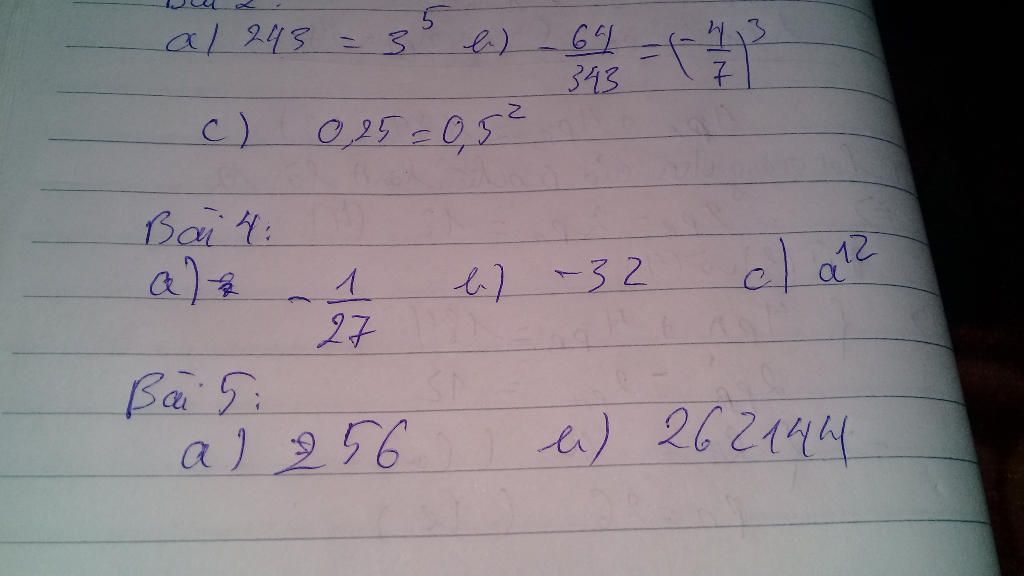 Bài 2:
a) 243 = 3^5 b) -64/343 = (-4/7)^3
c) 0,25 = 0,5^2
Bài 4:
a) -1/27 b) -32 c) a^12
Bài 5:
a) 256 b) 262144